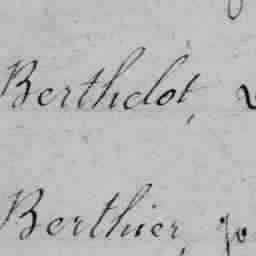 Berthelot,
Berthier, jo